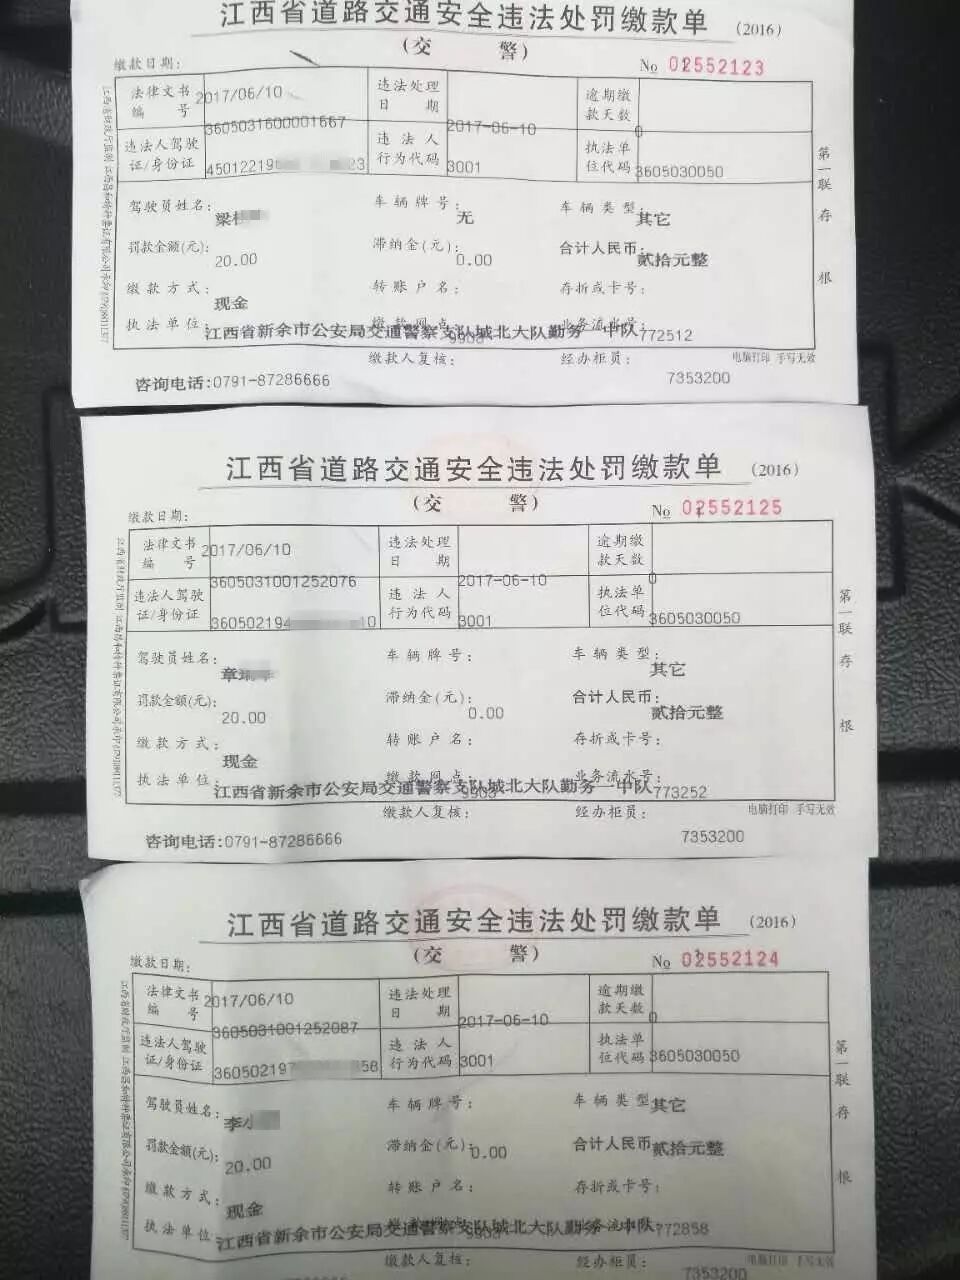 江西省道路交通安全违法处罚缴款单 (2016)
(交 警)
缴款日期: № 02552123
法律文书编号 2017/06/10 违法处理日期 逾期缴款天数
3605031600001667 2017-06-10 0
违法人驾驶证/身份证 45012219 23 违法人行为代码 3001 执法单位代码 3605030050
驾驶员姓名: 梁 车辆牌号: 无 车辆类型: 其它
罚款金额(元): 20.00 滞纳金(元): 0.00 合计人民币: 贰拾元整
缴款方式: 现金 转账户名: 存折或卡号:
执法单位: 江西省新余市公安局交通警察支队城北大队勤务一中队 缴款网点: 9903 业务流水号: 772512
缴款人复核: 经办柜员: 7353200 电脑打印 手写无效
咨询电话:0791-87286666
第一联 存根
江西省道路交通安全违法处罚缴款单 (2016)
(交 警)
缴款日期: № 02552125
法律文书编号 2017/06/10 违法处理日期 逾期缴款天数
3605031001252076 2017-06-10 0
违法人驾驶证/身份证 36050219 10 违法人行为代码 3001 执法单位代码 3605030050
驾驶员姓名: 章 车辆牌号: 车辆类型: 其它
罚款金额(元): 20.00 滞纳金(元): 0.00 合计人民币: 贰拾元整
缴款方式: 现金 转账户名: 存折或卡号:
执法单位: 江西省新余市公安局交通警察支队城北大队勤务一中队 缴款网点: 9903 业务流水号: 773252
缴款人复核: 经办柜员: 7353200 电脑打印 手写无效
咨询电话:0791-87286666
第一联 存根
江西省道路交通安全违法处罚缴款单 (2016)
(交 警)
缴款日期: № 02552124
法律文书编号 2017/06/10 违法处理日期 逾期缴款天数
3605031001252087 2017-06-10 0
违法人驾驶证/身份证 36050219 58 违法人行为代码 3001 执法单位代码 3605030050
驾驶员姓名: 李小 车辆牌号: 车辆类型: 其它
罚款金额(元): 20.00 滞纳金(元): 0.00 合计人民币: 贰拾元整
缴款方式: 现金 转账户名: 存折或卡号:
执法单位: 江西省新余市公安局交通警察支队城北大队勤务一中队 缴款网点: 9903 业务流水号: 772858
缴款人复核: 经办柜员: 7353200 电脑打印 手写无效
第一联 存根